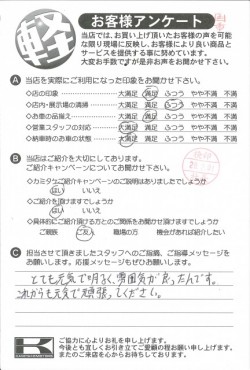 軽
お客様アンケート
当店では、お買い上げ頂いたお客様の声を可能
な限り現場に反映し、お客様により良い商品と
サービスを提供する事に努めています。
大変お手数ですが是非お声をお聞かせ下さい。
A 当店を実際にご利用になった印象をお聞かせ下さい。
◇店の印象 大満足 満足 ふつう やや不満 不満
◇店内・展示場の清掃 大満足 満足 ふつう やや不満 不満
◇お車の品揃え 大満足 満足 ふつう やや不満 不満
◇営業スタッフの対応 大満足 満足 ふつう やや不満 不満
◇納車時のお車の状態 大満足 満足 ふつう やや不満 不満
B 当店はご紹介を大切にしております。
ご紹介キャンペーンについてお聞かせ下さい。
◇カミタケご紹介キャンペーンのご説明はありましたでしょうか
はい いいえ
◇ご紹介を頂けますでしょうか
はい いいえ
◇具体的にご紹介頂ける方とのご関係をお聞かせ頂けますでしょうか
ご親族 ご友人 職場の方 機会があれば紹介したい
C 担当させて頂きましたスタッフへのご指摘、ご指導メッセージを
お願いします。応援メッセージもぜひお願いします。
とても元気で明るく、雰囲気が良ったんです。
これからも元気で頑張ってください。
K
ご協力に心よりお礼を申し上げます。
今後とも宜しくお引き立てご愛顧の程お願い申し上げます。
またのご来店を心からお待ちしております。